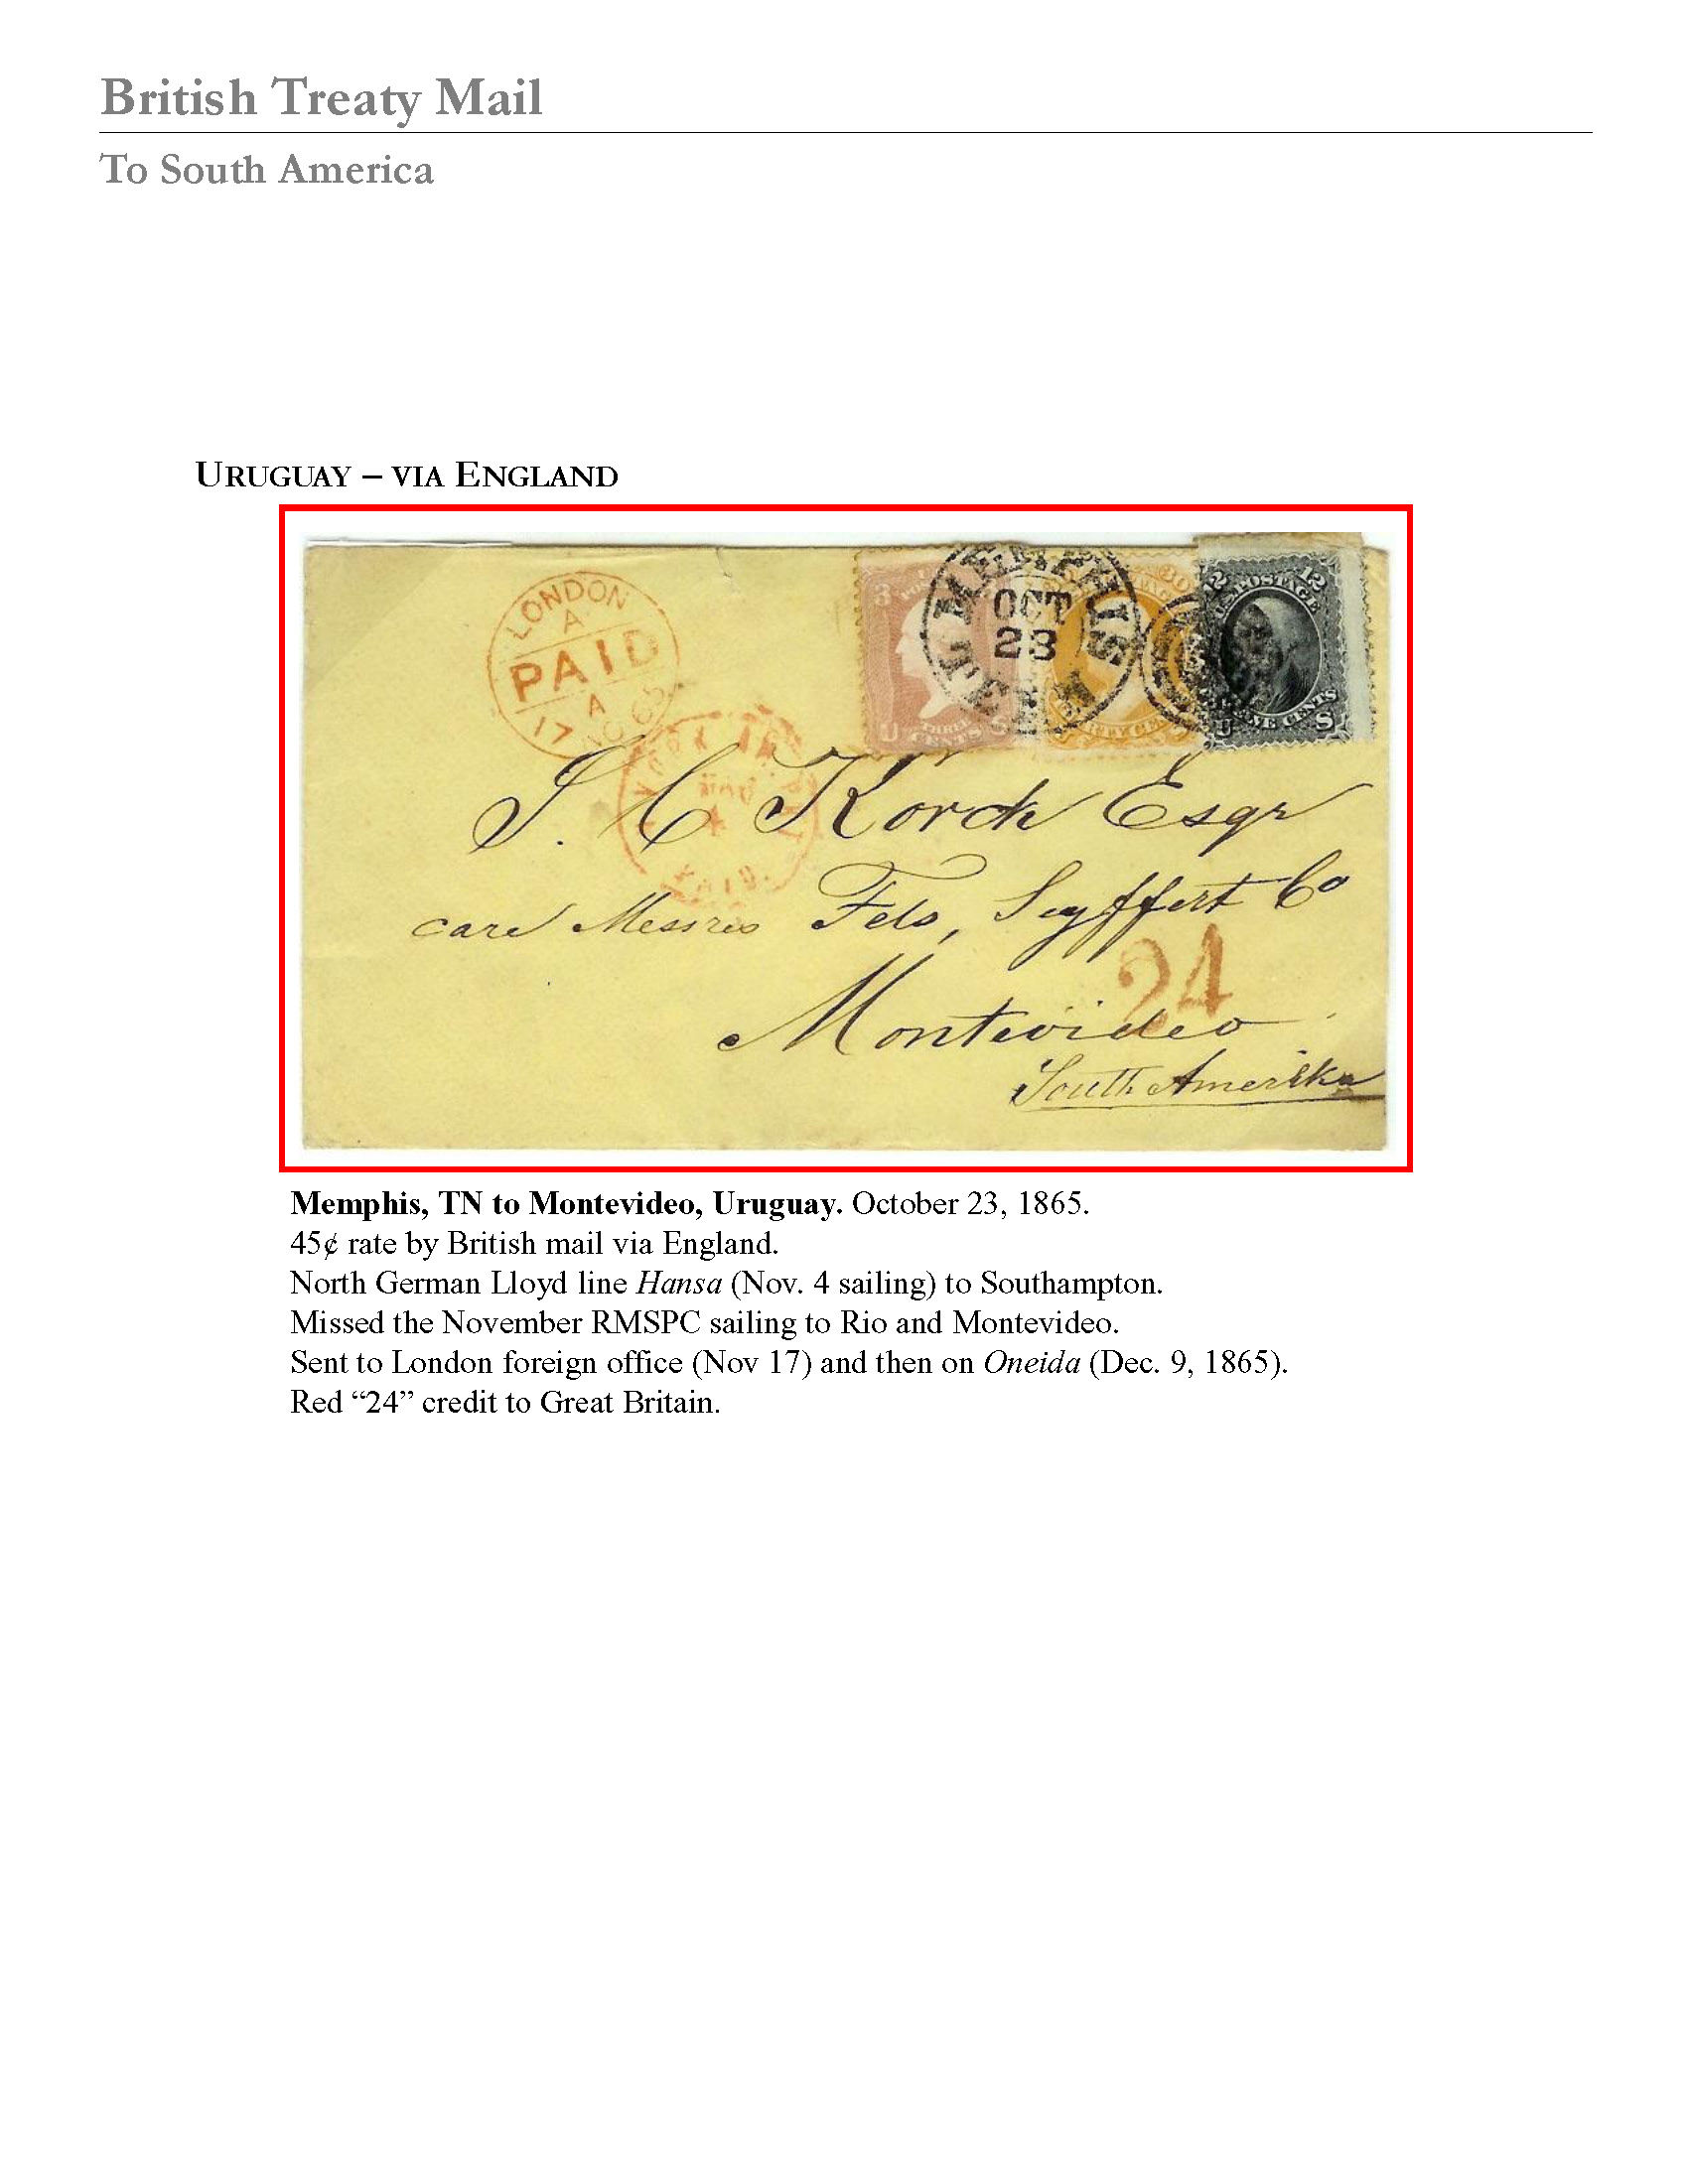 British Treaty Mail
To South America
URUGUAY – VIA ENGLAND
LONDON
A
PAID
A
17
3
U THREE CENTS S
MEMPHIS
OCT
23
30
12 U.S. POSTAGE 12
U S
J. C Korck Esqr
care Messres Fels, Seyffert Co
24
Montevideo
South Amerika
PAID
Memphis, TN to Montevideo, Uruguay. October 23, 1865.
45¢ rate by British mail via England.
North German Lloyd line Hansa (Nov. 4 sailing) to Southampton.
Missed the November RMSPC sailing to Rio and Montevideo.
Sent to London foreign office (Nov 17) and then on Oneida (Dec. 9, 1865).
Red “24” credit to Great Britain.